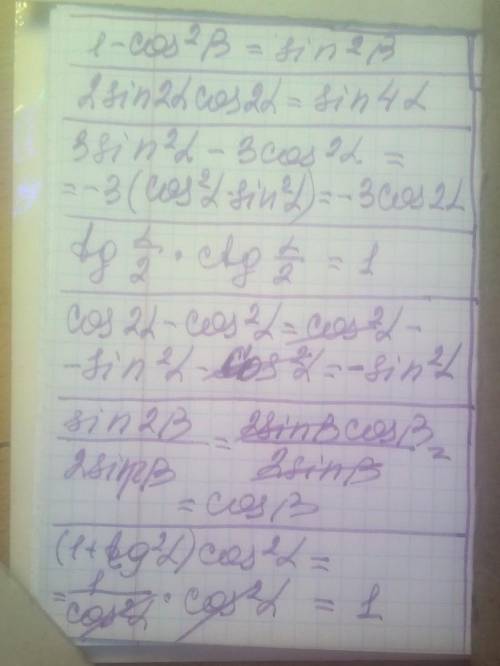 1 - cos²β = sin²β
2sin2α cos2α = sin4α
3sin²α - 3cos²α =
= -3(cos²α - sin²α) = -3cos2α
tg α/2 · ctg α/2 = 1
cos2α - cos²α = cos²α -
- sin²α - cos²α = - sin²α
sin2β / 2sinβ = 2sinβcosβ / 2sinβ =
= cosβ
(1 + tg²α)cos²α =
= 1/cos²α · cos²α = 1